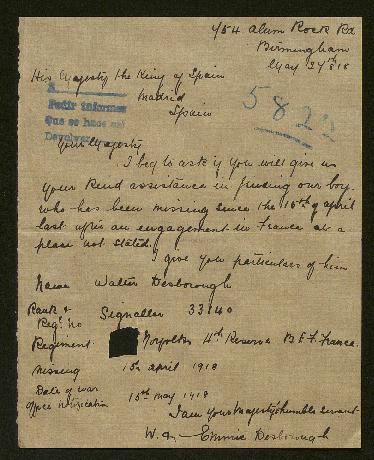 454 Alum Rock Rd
Birmingham
May 27th 18
His Majesty the King of Spain
Madrid
Spain
Pedir informes
Que se hace
Devolver
5822
Your Majesty
I beg to ask if you will give us
your kind assistance in finding our boy
who has been missing since the 15th of April
last after an engagement in France at a
place not stated.
I give you particulars of him
Name Walter Desborough
Rank & Signaller 33140
Reg. no
Regiment Norfolks 4th Reserve B.E.F. France.
Missing 15th April 1918
Date of war 15th May 1918
office notification
I am your Majesty's humble servant
W. & Emmie Desborough